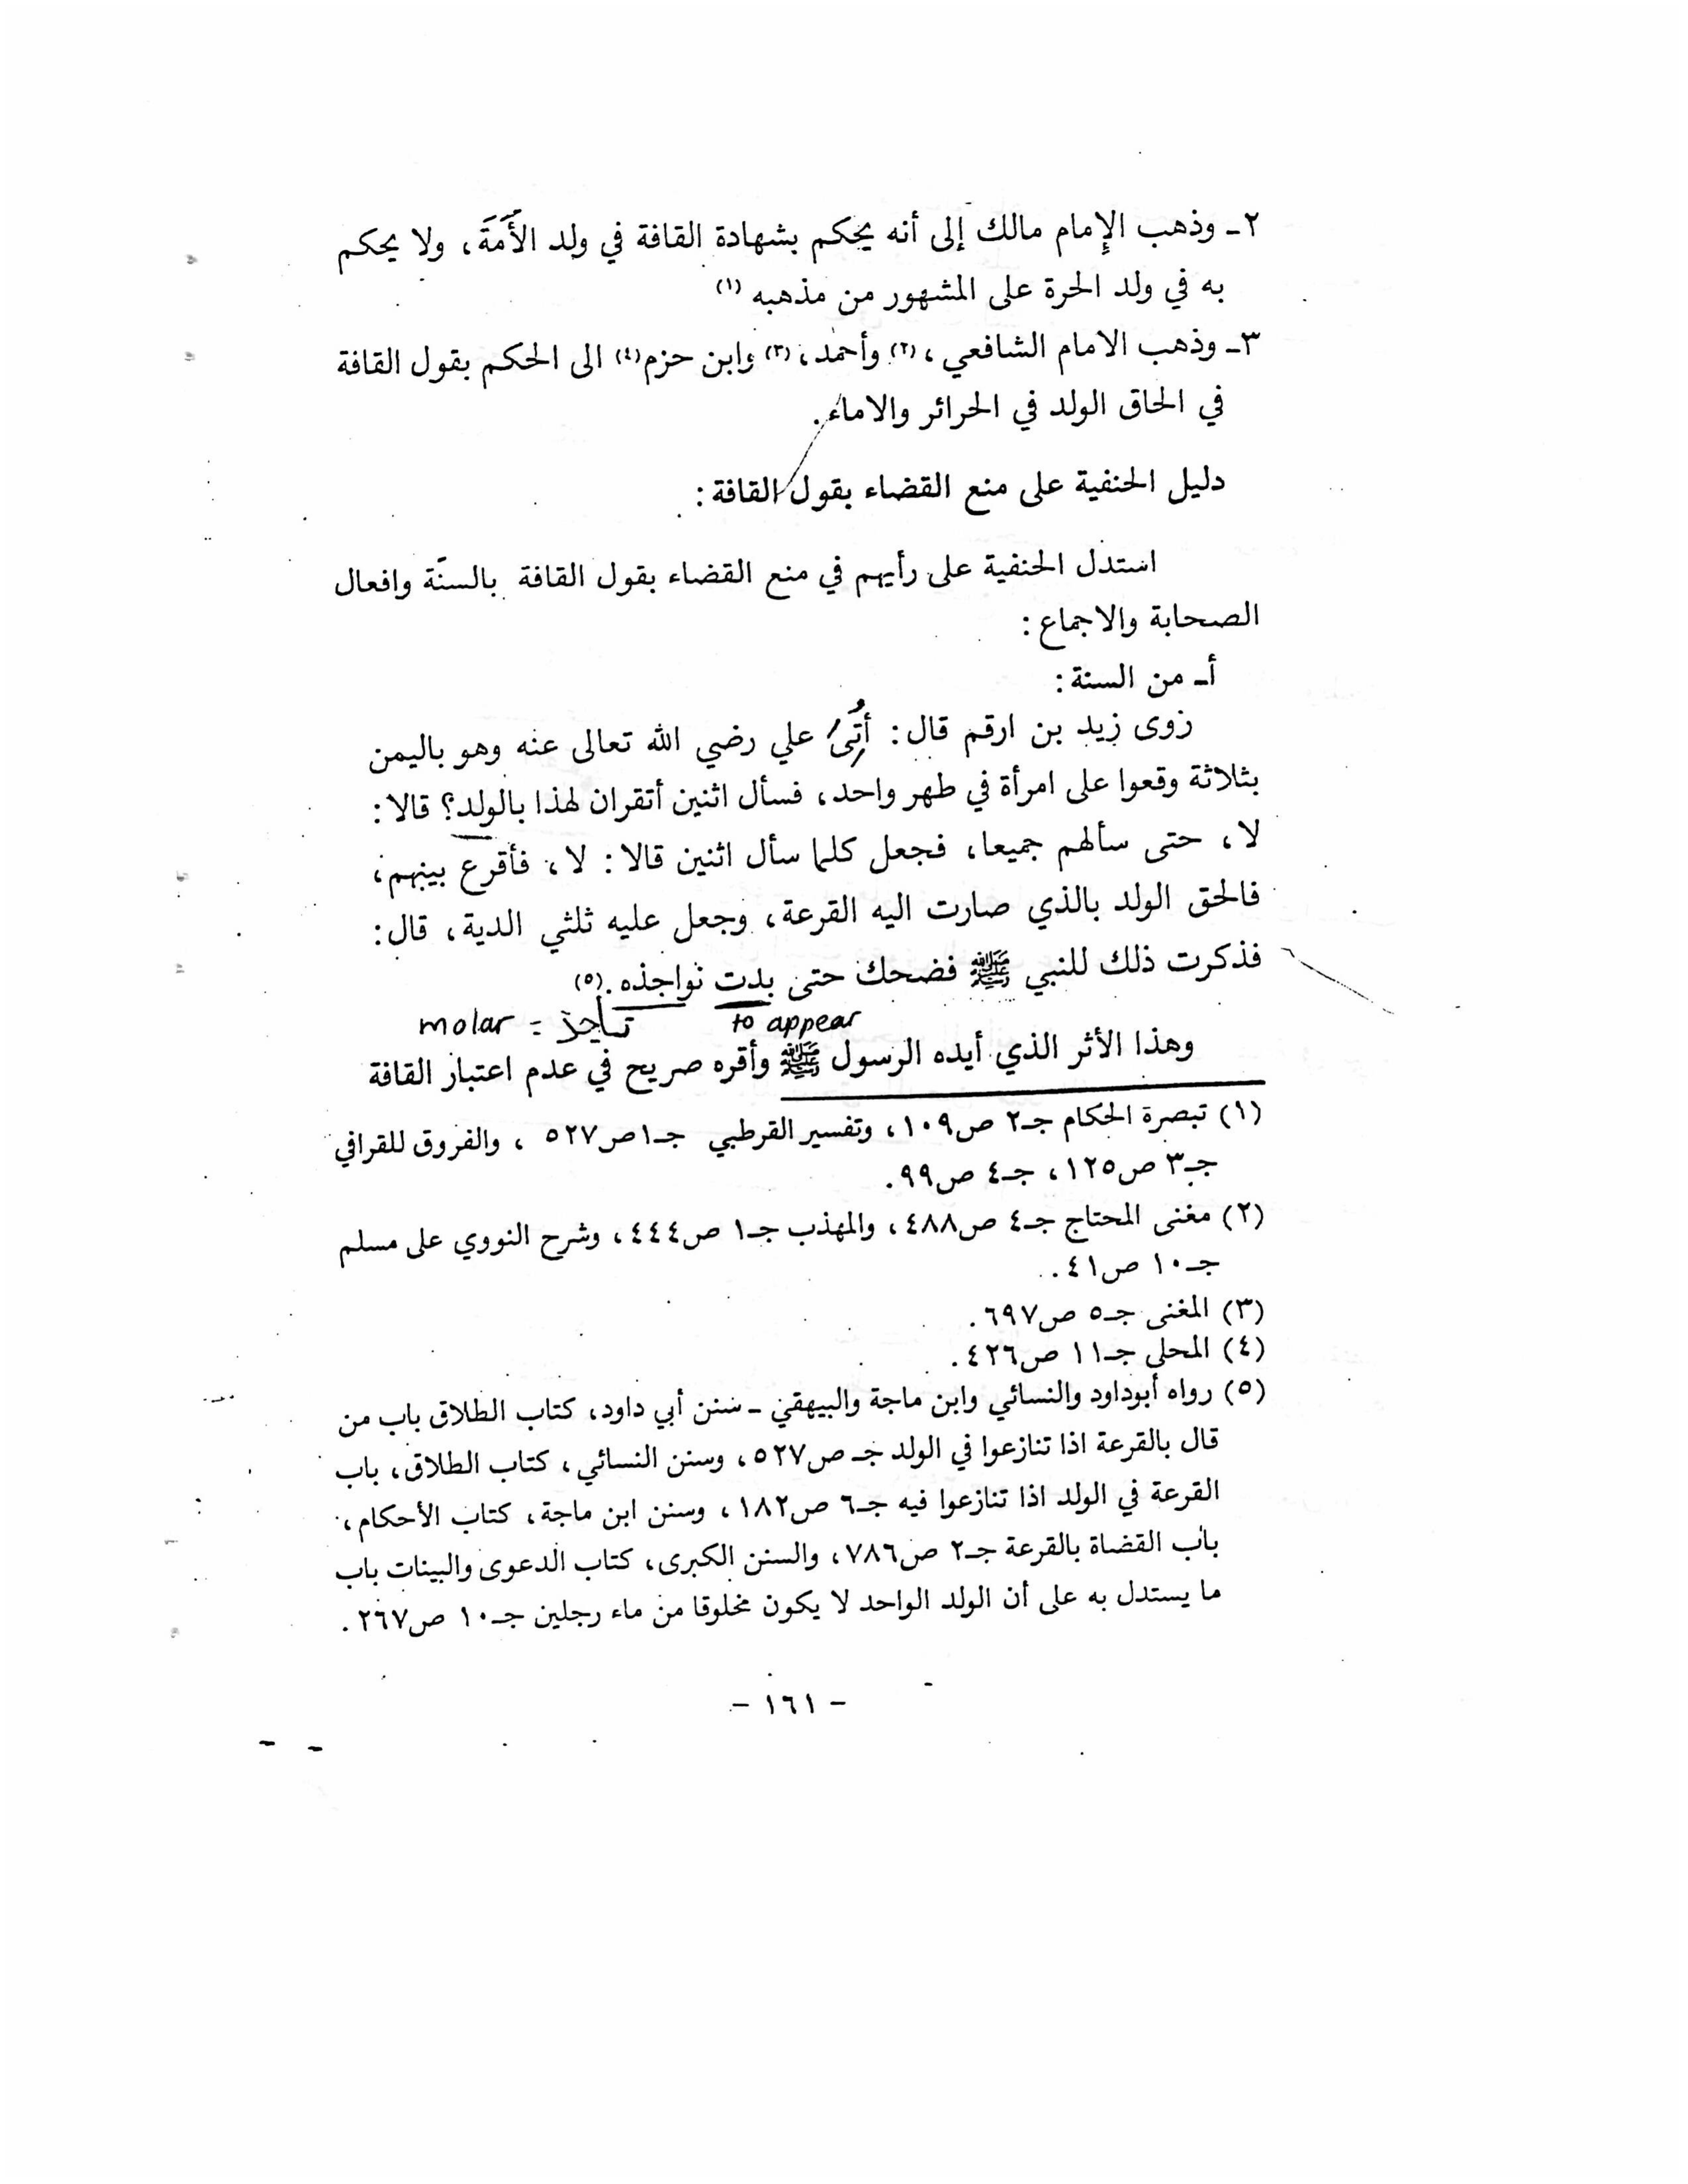 ٢ـ وذهب الإمام مالك إلى أنه يحكم بشهادة القافة في ولد الأَمَةَ، ولا يحكم
به في ولد الحرة على المشهور من مذهبه (١)
٣ـ وذهب الامام الشافعي،(٢) وأحمد،(٣) وابن حزم(٤) الى الحكم بقول القافة
في الحاق الولد في الحرائر والاماء.
دليل الحنفية على منع القضاء بقول القافة:
استدل الحنفية على رأيهم في منع القضاء بقول القافة بالسنّة وافعال
الصحابة والاجماع:
أـ من السنة:
روى زيد بن ارقم قال: أُتِىَ علي رضي الله تعالى عنه وهو باليمن
بثلاثة وقعوا على امرأة في طهر واحد، فسأل اثنين أتقران لهذا بالولد؟ قالا:
لا، حتى سألهم جميعا، فجعل كلما سأل اثنين قالا: لا، فأقرع بينهم،
فالحق الولد بالذي صارت اليه القرعة، وجعل عليه ثلثي الدية، قال:
فذكرت ذلك للنبي ﷺ فضحك حتى بدت نواجذه.(٥)
to appear ناجذ = molar
وهذا الأثر الذي أيده الرسول ﷺ وأقره صريح في عدم اعتبار القافة
(١) تبصرة الحكام جـ٢ ص١٠٩، وتفسير القرطبي جـ١ ص٥٢٧، والفروق للقرافي
جـ٣ ص١٢٥، جـ٤ ص٩٩.
(٢) مغنى المحتاج جـ٤ ص٤٨٨، والمهذب جـ١ ص٤٤٤، وشرح النووي على مسلم
جـ١٠ ص٤١.
(٣) المغنى جـ٥ ص٦٩٧.
(٤) المحلى جـ١١ ص٤٢٦.
(٥) رواه أبوداود والنسائي وابن ماجة والبيهقي ـ سنن أبي داود، كتاب الطلاق باب من
قال بالقرعة اذا تنازعوا في الولد جـ ص٥٢٧، وسنن النسائي، كتاب الطلاق، باب
القرعة في الولد اذا تنازعوا فيه جـ٦ ص١٨٢، وسنن ابن ماجة، كتاب الأحكام،
باب القضاة بالقرعة جـ٢ ص٧٨٦، والسنن الكبرى، كتاب الدعوى والبينات باب
ما يستدل به على أن الولد الواحد لا يكون مخلوقا من ماء رجلين جـ١٠ ص٢٦٧.
- ١٦١ -